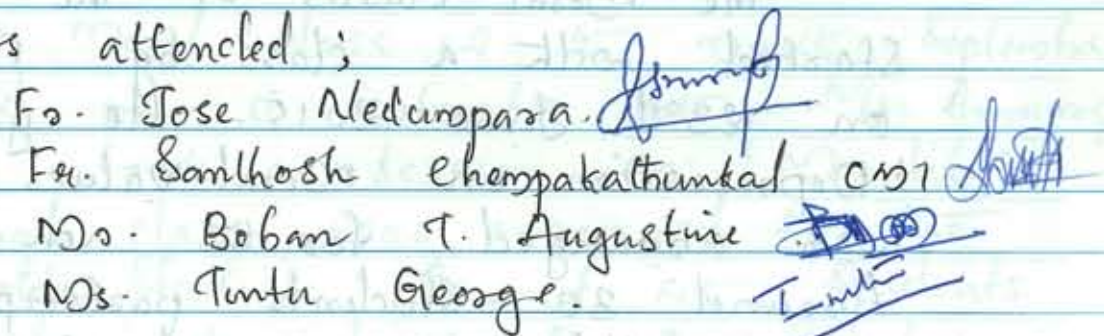 s attended ;
Fr. Jose Nedumpara.
Fr. Santhosh Chempakathinkal CMI
Mr. Boban T. Augustine
Ms. Tintu George.